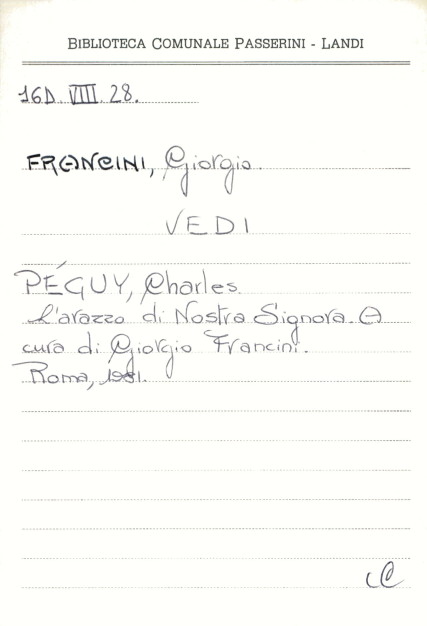 BIBLIOTECA COMUNALE PASSERINI - LANDI
16D. VIII. 28.
FRANCINI, Giorgio.
VEDI
PÉGUY, Charles
L'arazzo di Nostra Signora. A
cura di Giorgio Francini.
Roma, 1981.